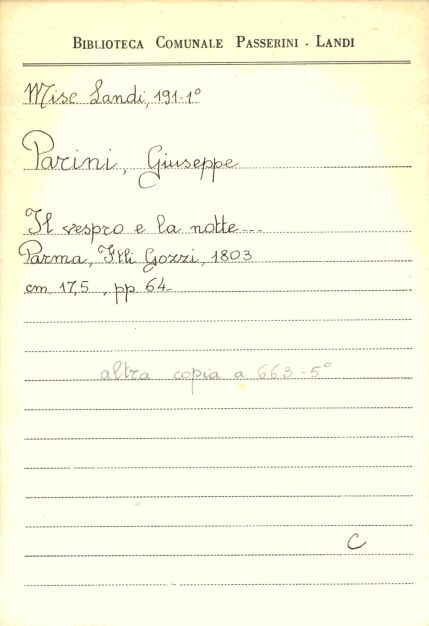 BIBLIOTECA COMUNALE PASSERINI - LANDI
Misc Landi, 191-1°
Parini, Giuseppe
Il vespro e la notte ---
Parma, F.lli Gozzi, 1803
cm 17,5 , pp 64-
altra copia a 663-5°
C